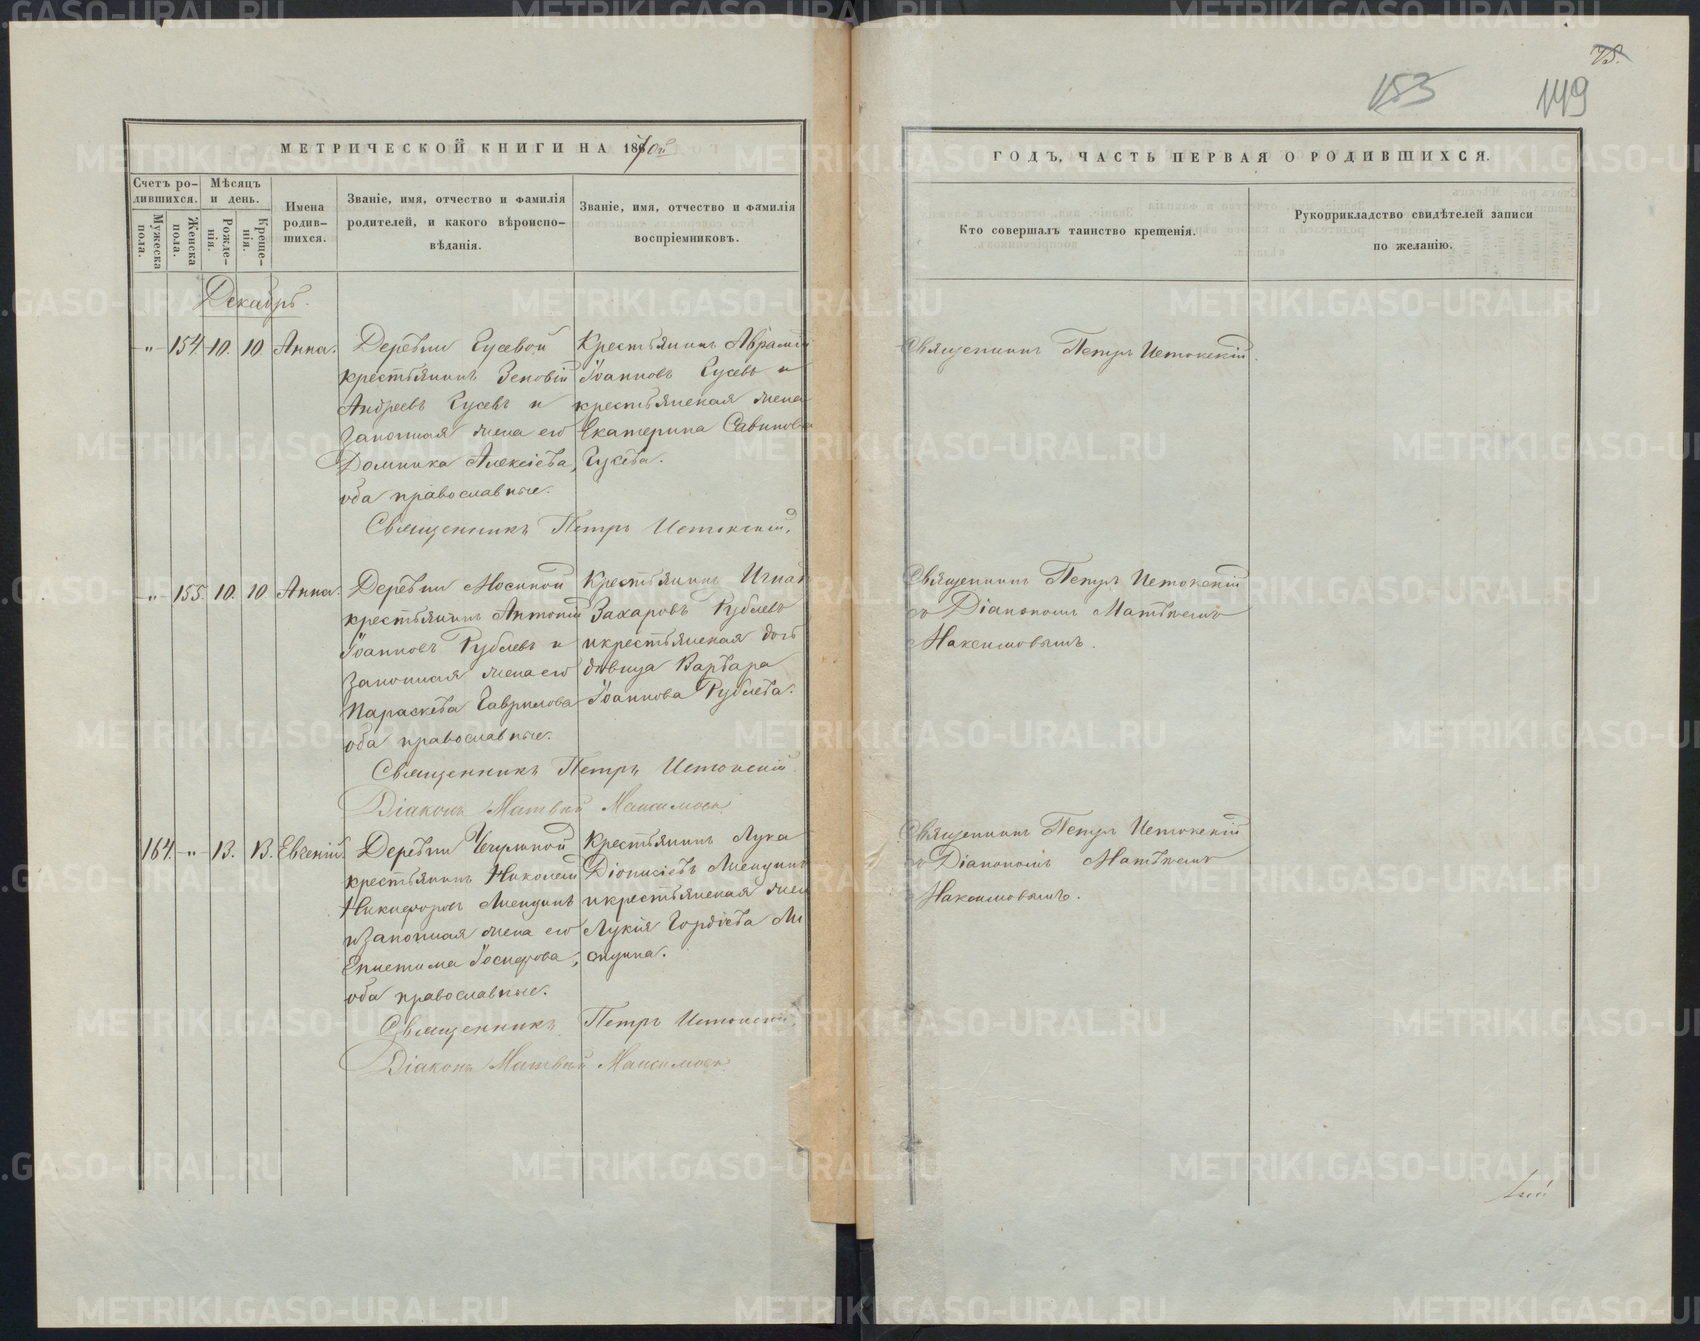 75.
153
149
МЕТРИЧЕСКОЙ КНИГИ НА 1870й
ГОДЪ, ЧАСТЬ ПЕРВАЯ О РОДИВШИХСЯ.
Счетъ ро-
дившихся.
Мужеска
пола.
Женска
пола.
Мѣсяцъ
и день.
Рожде-
нія.
Креще-
нія.
Имена
родив-
шихся.
Званіе, имя, отчество и фамилія
родителей, и какого вѣроиспо-
вѣданія.
Званіе, имя, отчество и фамилія
воспріемниковъ.
Кто совершалъ таинство крещенія.
Рукоприкладство свидѣтелей записи
по желанію.
Декабрь.
-"- 154. 10. 10 Анна.
Деревни Гусевой
крестьянинъ Зеновій
Андреевъ Гусевъ и
законная жена его
Домника Алексіева,
оба православные.
Крестьянинъ Аврамій
Іоанновъ Гусевъ и
крестьянская жена
Екатерина Савинова
Гусева.
Священникъ Петръ Истокскій.
Священникъ Петръ Истокскій.
-"- 155. 10. 10 Анна.
Деревни Мосиной
крестьянинъ Антоній
Іоанновъ Рублевъ и
законная жена его
Параскева Гаврилова
оба православные.
Крестьянинъ
Захаровъ Рублевъ
и крестьянская дочь
дѣвица Варвара
Іоаннова Рублева.
Священникъ Петръ Истокскій
Діаконъ Матвѣй Максимовъ
Священникъ Петръ Истокскій
съ Діакономъ Матвѣемъ
Максимовымъ.
164. -"- 13. 13. Евгеній.
Деревни
крестьянинъ Николай
Никифоровъ и законная жена его
Епистима Іосифова,
оба православные.
Крестьянинъ Лука
Діонисіевъ
и крестьянская жена
Лукія Гордіева
Священникъ Петръ Истокскій,
Діаконъ Матвѣй Максимовъ
Священникъ Петръ Истокскій
съ Діакономъ Матвѣемъ
Максимовымъ.
METRIKI.GASO-URAL.RU